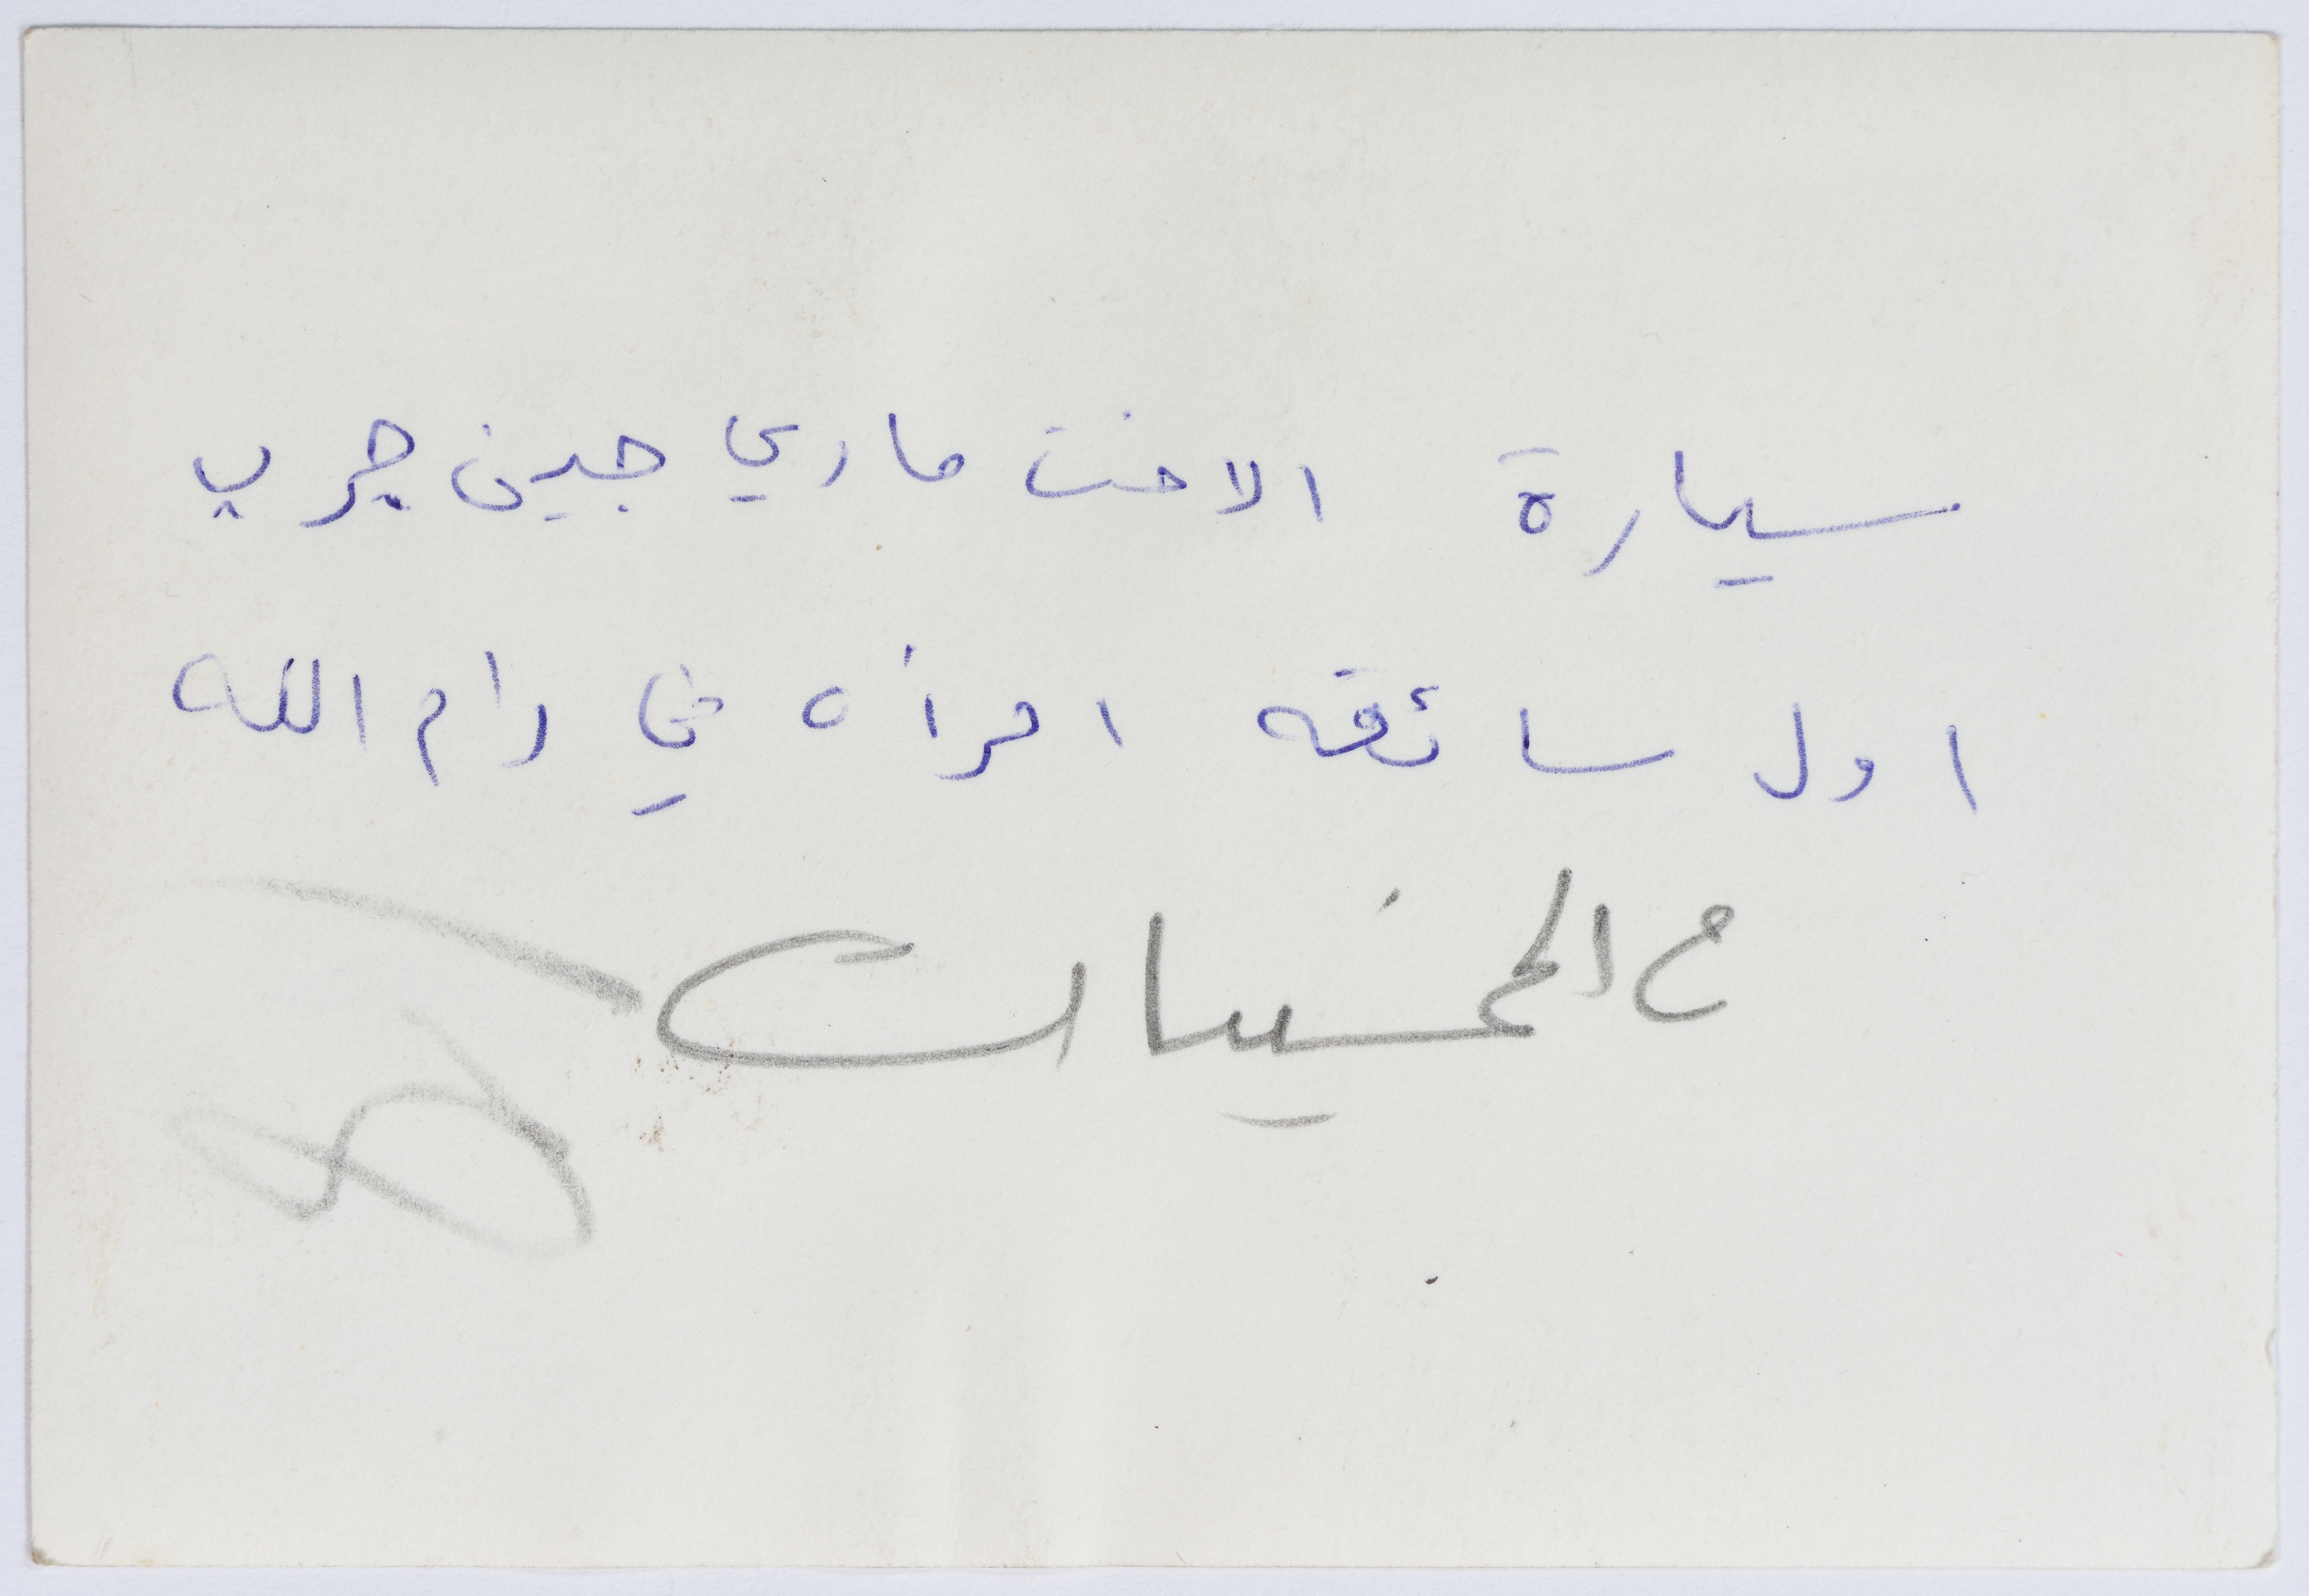 سيارة الاخت ماري جين جرب
اول سائقه امرأه في رام الله
م الخمسينات